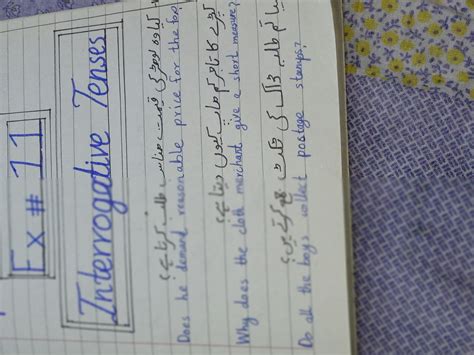 Ex # 11
Interrogative Tenses
کیا وہ کی قیمت مناسب طلب کرتا ہے؟
Does he demand reasonable price for the top?
کپڑے کا تاجر کم ماپ کیوں دیتا ہے؟
Why does the cloth merchant give a short measure?
ڈاک کی ٹکٹ جمع کرتے ہیں؟
Do all the boys collect postage stamps?